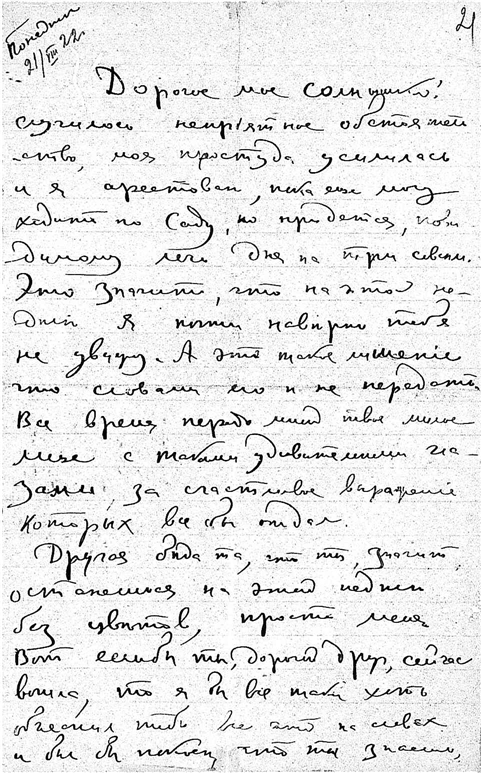 21
Понедельн
21/VIII 22.
Дорогое мое солнышко!
случилось непрiятное обстоятель
ство, моя простуда усилилась
и я арестован, пока еще могу
ходить по Саду, но придется, пови
димому лечь дня на три совсем.
Это значит, что на этой не-
дѣли я почти навѣрно тебя
не увижу. А это такое лишенiе
что словами его и не передать.
Все время передъ мной твое милое
лице с такими удивительными гла-
зами, за счастливое выраженiе
которых все бы отдал.
Другая бѣда та, что ты, значит,
останешься на этой недѣли
без цвѣтов, прости меня
Вот еслибы ты, дорогой друг, сейчас
вошла, то я бы всё таки хоть
объяснил тебѣ все это на словах
и был бы покоен что ты знаешь,